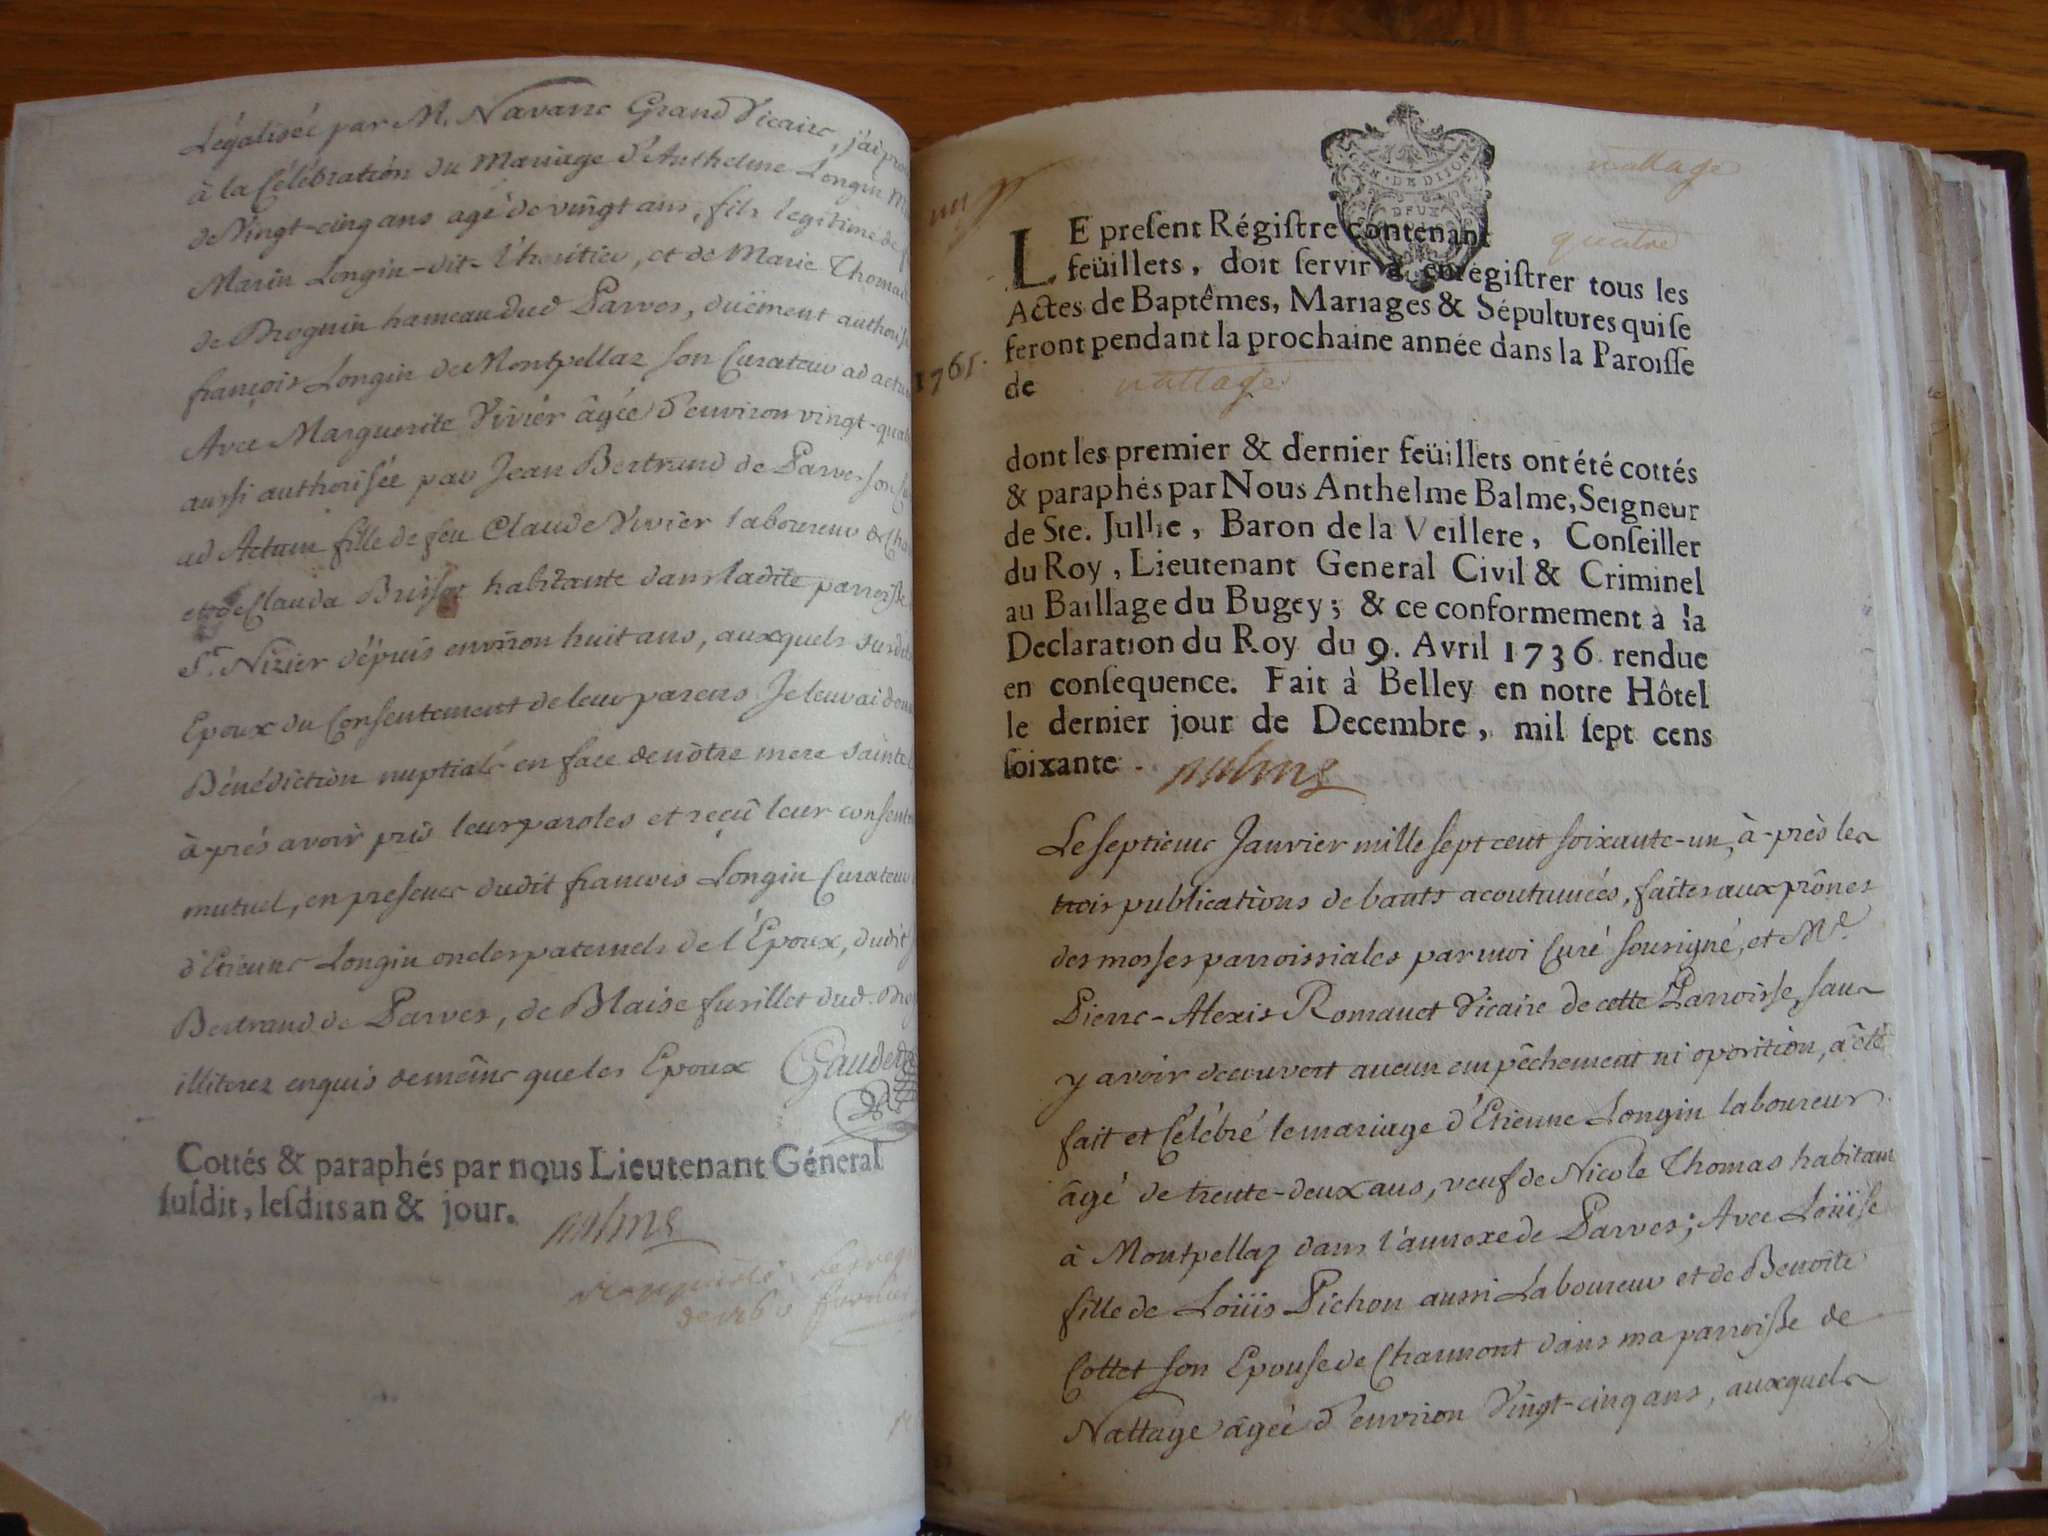 Légalisée par M. Navarre Grand Vicaire, j'ai
à la Célébration du Mariage d'Anthelme Longin
de Vingt-cinq ans agé de vingt ans, fils legitime de
Marin Longin-dit-l'heritier, et de Marie Thomas
de Brognin hameau dud Parves, duëment
françois Longin de Montpellaz son Curateur ad
Avec Marguerite Vivier âgée d'environ vingt-
aussi authorisée par Jean Bertrand de Parves son
ad Actum fille de feu Claude Vivier laboureur &
et de Clauda habitante dans ladite parroisse
St. Nizier dépuis environ huit ans, auxquels
Epoux du Consentement de leur parens Je leur ai
Bénédiction nuptiale en face de nôtre mere sainte
à-prés avoir pris leur paroles et reçû leur
mutuel, en presence dudit francois Longin Curateur
d'Etienne Longin oncles paternels de l'Epoux, dudit
Bertrand de Parves, de Blaise furillet dud.
illiterez enquis de même que les Epoux
Cottés & paraphés par nous Lieutenant Géneral
susdit, lesdits an & jour.
Balme
nattage
GEN · DE DIJON
DEUX
LE present Régistre contenant quatre
feüillets, doit servir à enrégistrer tous les
Actes de Baptêmes, Mariages & Sépultures qui se
feront pendant la prochaine année dans la Paroisse
1761.
de nattage
dont les premier & dernier feüillets ont été cottés
& paraphés par Nous Anthelme Balme, Seigneur
de Ste. Julhe, Baron de la Veillere, Conseiller
du Roy, Lieutenant General Civil & Criminel
au Baillage du Bugey; & ce conformement à la
Declaration du Roy du 9. Avril 1736. rendue
en consequence. Fait à Belley en notre Hôtel
le dernier jour de Decembre, mil sept cens
soixante. Balme
Le septieme Janvier mille sept cent soixante-un, à-près les
trois publications de bants acoutumées, faites aux prônes
des messes parroissiales par moi Curé sousigné, et Mre.
Pierre-Alexis Romanet Vicaire de cette Parroisse, sans
y avoir decouvert aucun empêchement ni oposition, a été
fait et Célébré le mariage d'Etienne Longin laboureur
âgé de trente-deux ans, veuf de Nicole Thomas habitant
à Montpellaz dans l'annexe de Parves; Avec Loüise
fille de Loüis Pichon aussi Laboureur et de Benoite
Collet son Epouse de Charmont dans ma parroisse de
Nattage âgée d'environ Vingt-cinq ans, auxquels